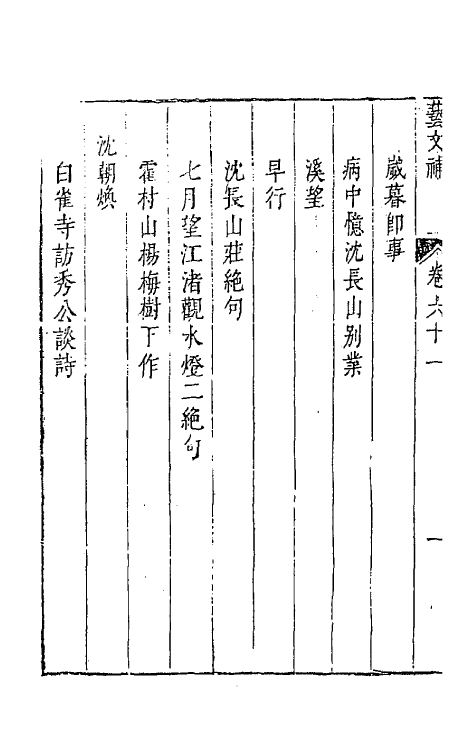 藝文補 卷六十一 一
歲暮卽事
病中憶沈長山別業
溪望
早行
沈長山莊絕句
七月望江渚觀水燈二絕句
霍村山楊梅樹下作
沈朝煥
白雀寺訪秀公談詩